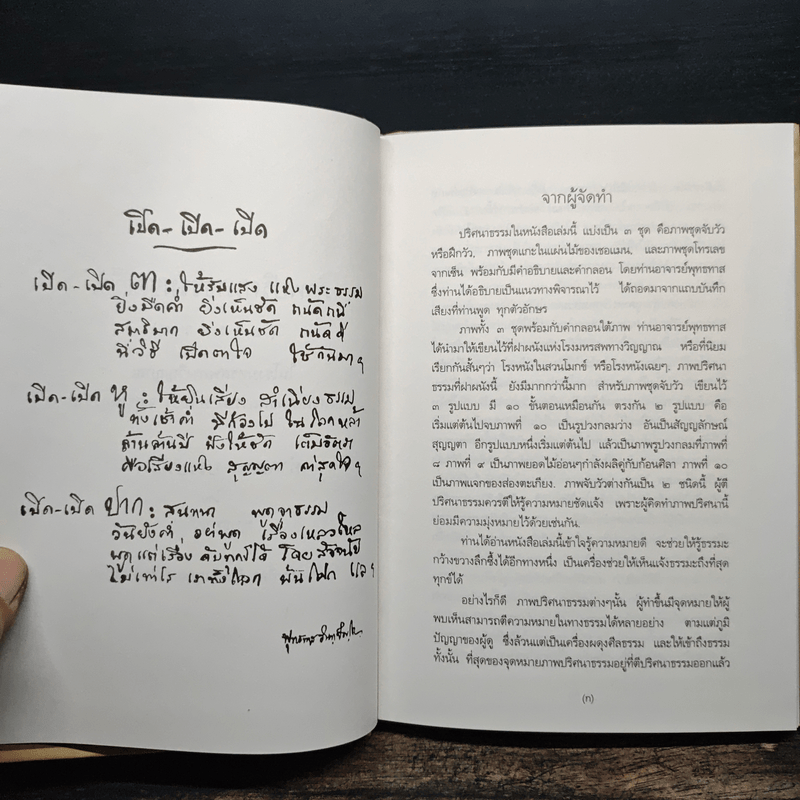 เปิด-เปิด-เปิด
เปิด-เปิด ตา : ให้รับแสง แห่งพระธรรม
ยิ่งมืดค่ำ ยิ่งเห็นชัด ถนัดถนี่
สมาธิมาก ยิ่งเห็นชัด ถนัดดี
นี่วิธี เปิดตาใจ ใช้กันมาฯ
เปิด-เปิด หู : ให้ยินเสียง สำเนียงธรรม
ทั้งเช้าค่ำ มีก้องไป ในโลกหล้า
ล้านล้านปี ฟังให้ชัด เต็มอัตรา
คือเสียงแห่ง สุญญตา ค่าสุดใจฯ
เปิด-เปิด ปาก : สนทนา พูดจาธรรม
วันยังค่ำ อย่าพูด เรื่องเหลวไหล
พูดแต่เรื่อง ดับทุกข์ได้ โดยสัจนัย
ไม่เท่าไร เราทั้งโลก พ้นโศก แลฯ
พุทธทาส อินฺทปญฺโญ
จากผู้จัดทำ
ปริศนาธรรมในหนังสือเล่มนี้ แบ่งเป็น ๓ ชุด คือภาพชุดจับวัว
หรือฝึกวัว, ภาพชุดแกะในแผ่นไม้ของเยอแมน, และภาพชุดโทรเลข
จากเซ็น พร้อมกับมีคำอธิบายและคำกลอน โดยท่านอาจารย์พุทธทาส
ซึ่งท่านได้อธิบายเป็นแนวทางพิจารณาไว้ ได้ถอดมาจากแถบบันทึก
เสียงที่ท่านพูด ทุกตัวอักษร
ภาพทั้ง ๓ ชุดพร้อมกับคำกลอนใต้ภาพ ท่านอาจารย์พุทธทาส
ได้นำมาให้เขียนไว้ที่ฝาผนังในโรงมหรสพทางวิญญาณ หรือที่นิยม
เรียกกันสั้นๆว่า โรงหนังในสวนโมกข์ หรือโรงหนังเฉยๆ. ภาพปริศนา
ธรรมที่ฝาผนังนี้ ยังมีมากกว่านี้มาก สำหรับภาพชุดจับวัว เขียนไว้
๓ รูปแบบ มี ๑๐ ขั้นตอนเหมือนกัน ตรงกัน ๒ รูปแบบ คือ
เริ่มแต่ต้นไปจบภาพที่ ๑๐ เป็นรูปวงกลมว่าง อันเป็นสัญญลักษณ์
สุญญตา อีกรูปแบบหนึ่งเริ่มแต่ต้นไป แล้วเป็นภาพรูปวงกลมที่ภาพที่
๘ ภาพที่ ๙ เป็นภาพยอดไม้อ่อนๆกำลังผลิคู่กับก้อนศิลา ภาพที่ ๑๐
เป็นภาพแจกของส่องตะเกียง. ภาพจับวัวต่างกันเป็น ๒ ชนิดนี้ ผู้ตี
ปริศนาธรรมควรตีให้รู้ความหมายชัดแจ้ง เพราะผู้คิดทำภาพปริศนานี้
ย่อมมีความมุ่งหมายไว้ด้วยเช่นกัน.
ท่านได้อ่านหนังสือเล่มนี้เข้าใจรู้ความหมายดี จะช่วยให้รู้ธรรมะ
กว้างขวางลึกซึ้งได้อีกทางหนึ่ง เป็นเครื่องช่วยให้เห็นแจ้งธรรมะถึงที่สุด
ทุกข์ได้
อย่างไรก็ดี ภาพปริศนาธรรมต่างๆนั้น ผู้ทำขึ้นมีจุดหมายให้ผู้
พบเห็นสามารถตีความหมายในทางธรรมได้หลายอย่าง ตามแต่ภูมิ
ปัญญาของผู้ดู ซึ่งล้วนแต่เป็นเครื่องผดุงศีลธรรม และให้เข้าถึงธรรม
ทั้งนั้น ที่สุดของจุดหมายภาพปริศนาธรรมอยู่ที่ตีปริศนาธรรมออกแล้ว
(ก)